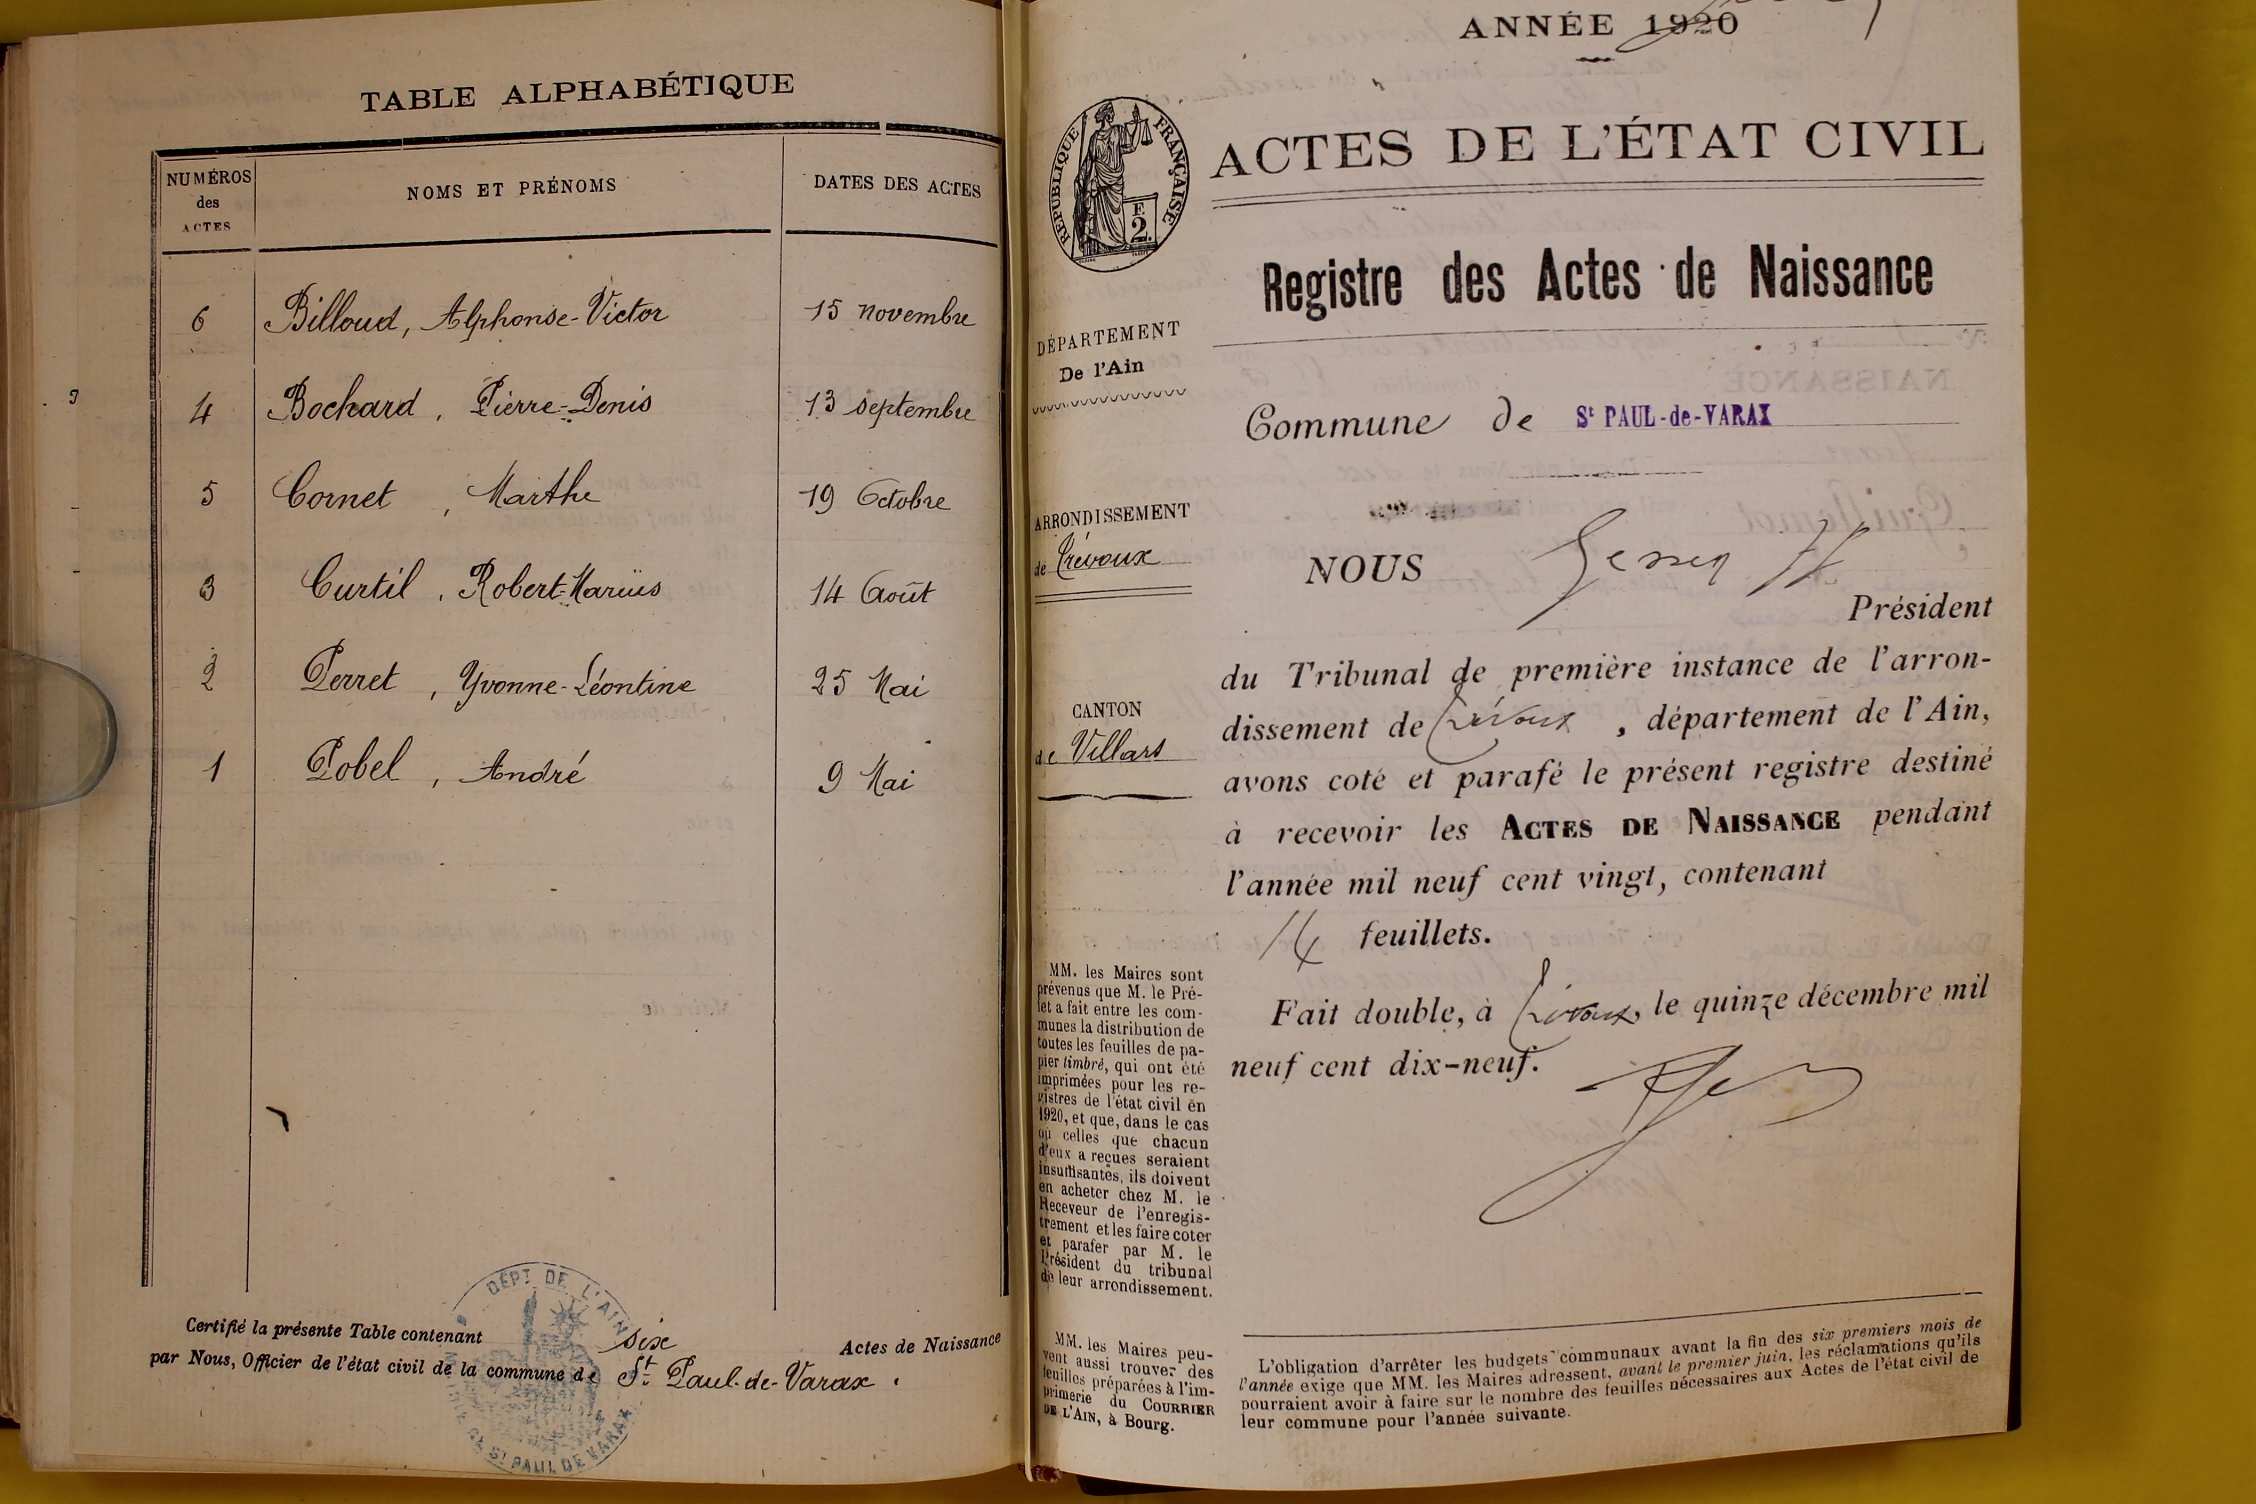 TABLE ALPHABÉTIQUE
NUMÉROS
des
ACTES
NOMS ET PRÉNOMS
DATES DES ACTES
6 Billoud, Alphonse-Victor 15 novembre
4 Bochard, Pierre-Denis 13 septembre
5 Cornet, Marthe 19 Octobre
3 Curtil, Robert-Marius 14 Août
2 Perret, Yvonne-Léontine 25 Mai
1 Pobel, André 9 Mai
Certifié la présente Table contenant six Actes de Naissance
par Nous, Officier de l'état civil de la commune de St Paul-de-Varax.
DÉPT DE L'AIN
ST PAUL DE VARAX
ANNÉE 1920
RÉPUBLIQUE FRANÇAISE
F.
2.
ACTES DE L'ÉTAT CIVIL
Registre des Actes de Naissance
DÉPARTEMENT
De l'Ain
ARRONDISSEMENT
de Trévoux
CANTON
de Villars
MM. les Maires sont
prévenus que M. le Pré-
fet a fait entre les com-
munes la distribution de
toutes les feuilles de pa-
pier timbré, qui ont été
imprimées pour les re-
gistres de l'état civil en
1920, et que, dans le cas
où celles que chacun
d'eux a reçues seraient
insuffisantes, ils doivent
en acheter chez M. le
Receveur de l'enregis-
trement et les faire coter
et parafer par M. le
Président du tribunal
de leur arrondissement.
MM. les Maires peu-
vent aussi trouver des
feuilles préparées à l'im-
primerie du COURRIER
DE L'AIN, à Bourg.
Commune de St PAUL-de-VARAX
NOUS
Président
du Tribunal de première instance de l'arron-
dissement de Trévoux, département de l'Ain,
avons coté et parafé le présent registre destiné
à recevoir les ACTES DE NAISSANCE pendant
l'année mil neuf cent vingt, contenant
14 feuillets.
Fait double, à Trévoux, le quinze décembre mil
neuf cent dix-neuf.
L'obligation d'arrêter les budgets communaux avant la fin des six premiers mois de
l'année exige que MM. les Maires adressent, avant le premier juin, les réclamations qu'ils
pourraient avoir à faire sur le nombre des feuilles nécessaires aux Actes de l'état civil de
leur commune pour l'année suivante.